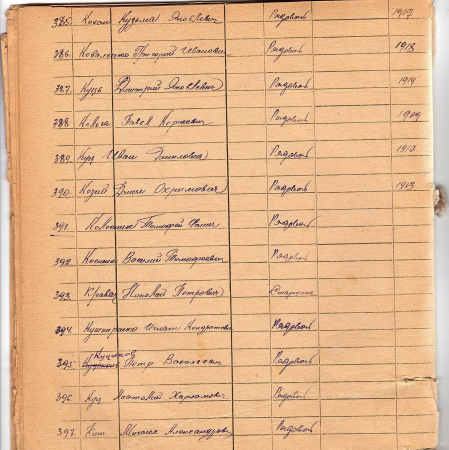 385. Кокан Кузьма Яковлевич Рядовой 1917
386. Коваленко Григорий Иванович Рядовой 1918
387. Куць Дмитрий Яковлевич Рядовой 1914
388. Рядовой 1909
389. Куц Иван Данилович Рядовой 1910
390. Козий Охримович Рядовой 1913
391. Тимофей Рядовой
392. Василий Тимофеевич Рядовой
393. Николай Петрович Старшина
394. Кушниренко Игнат Кондратович Рядовой
395. Куцаков Петр Васильевич Рядовой
396. Куц Анатолий Харламович Рядовой
397. Кит Михаил Александрович Рядовой